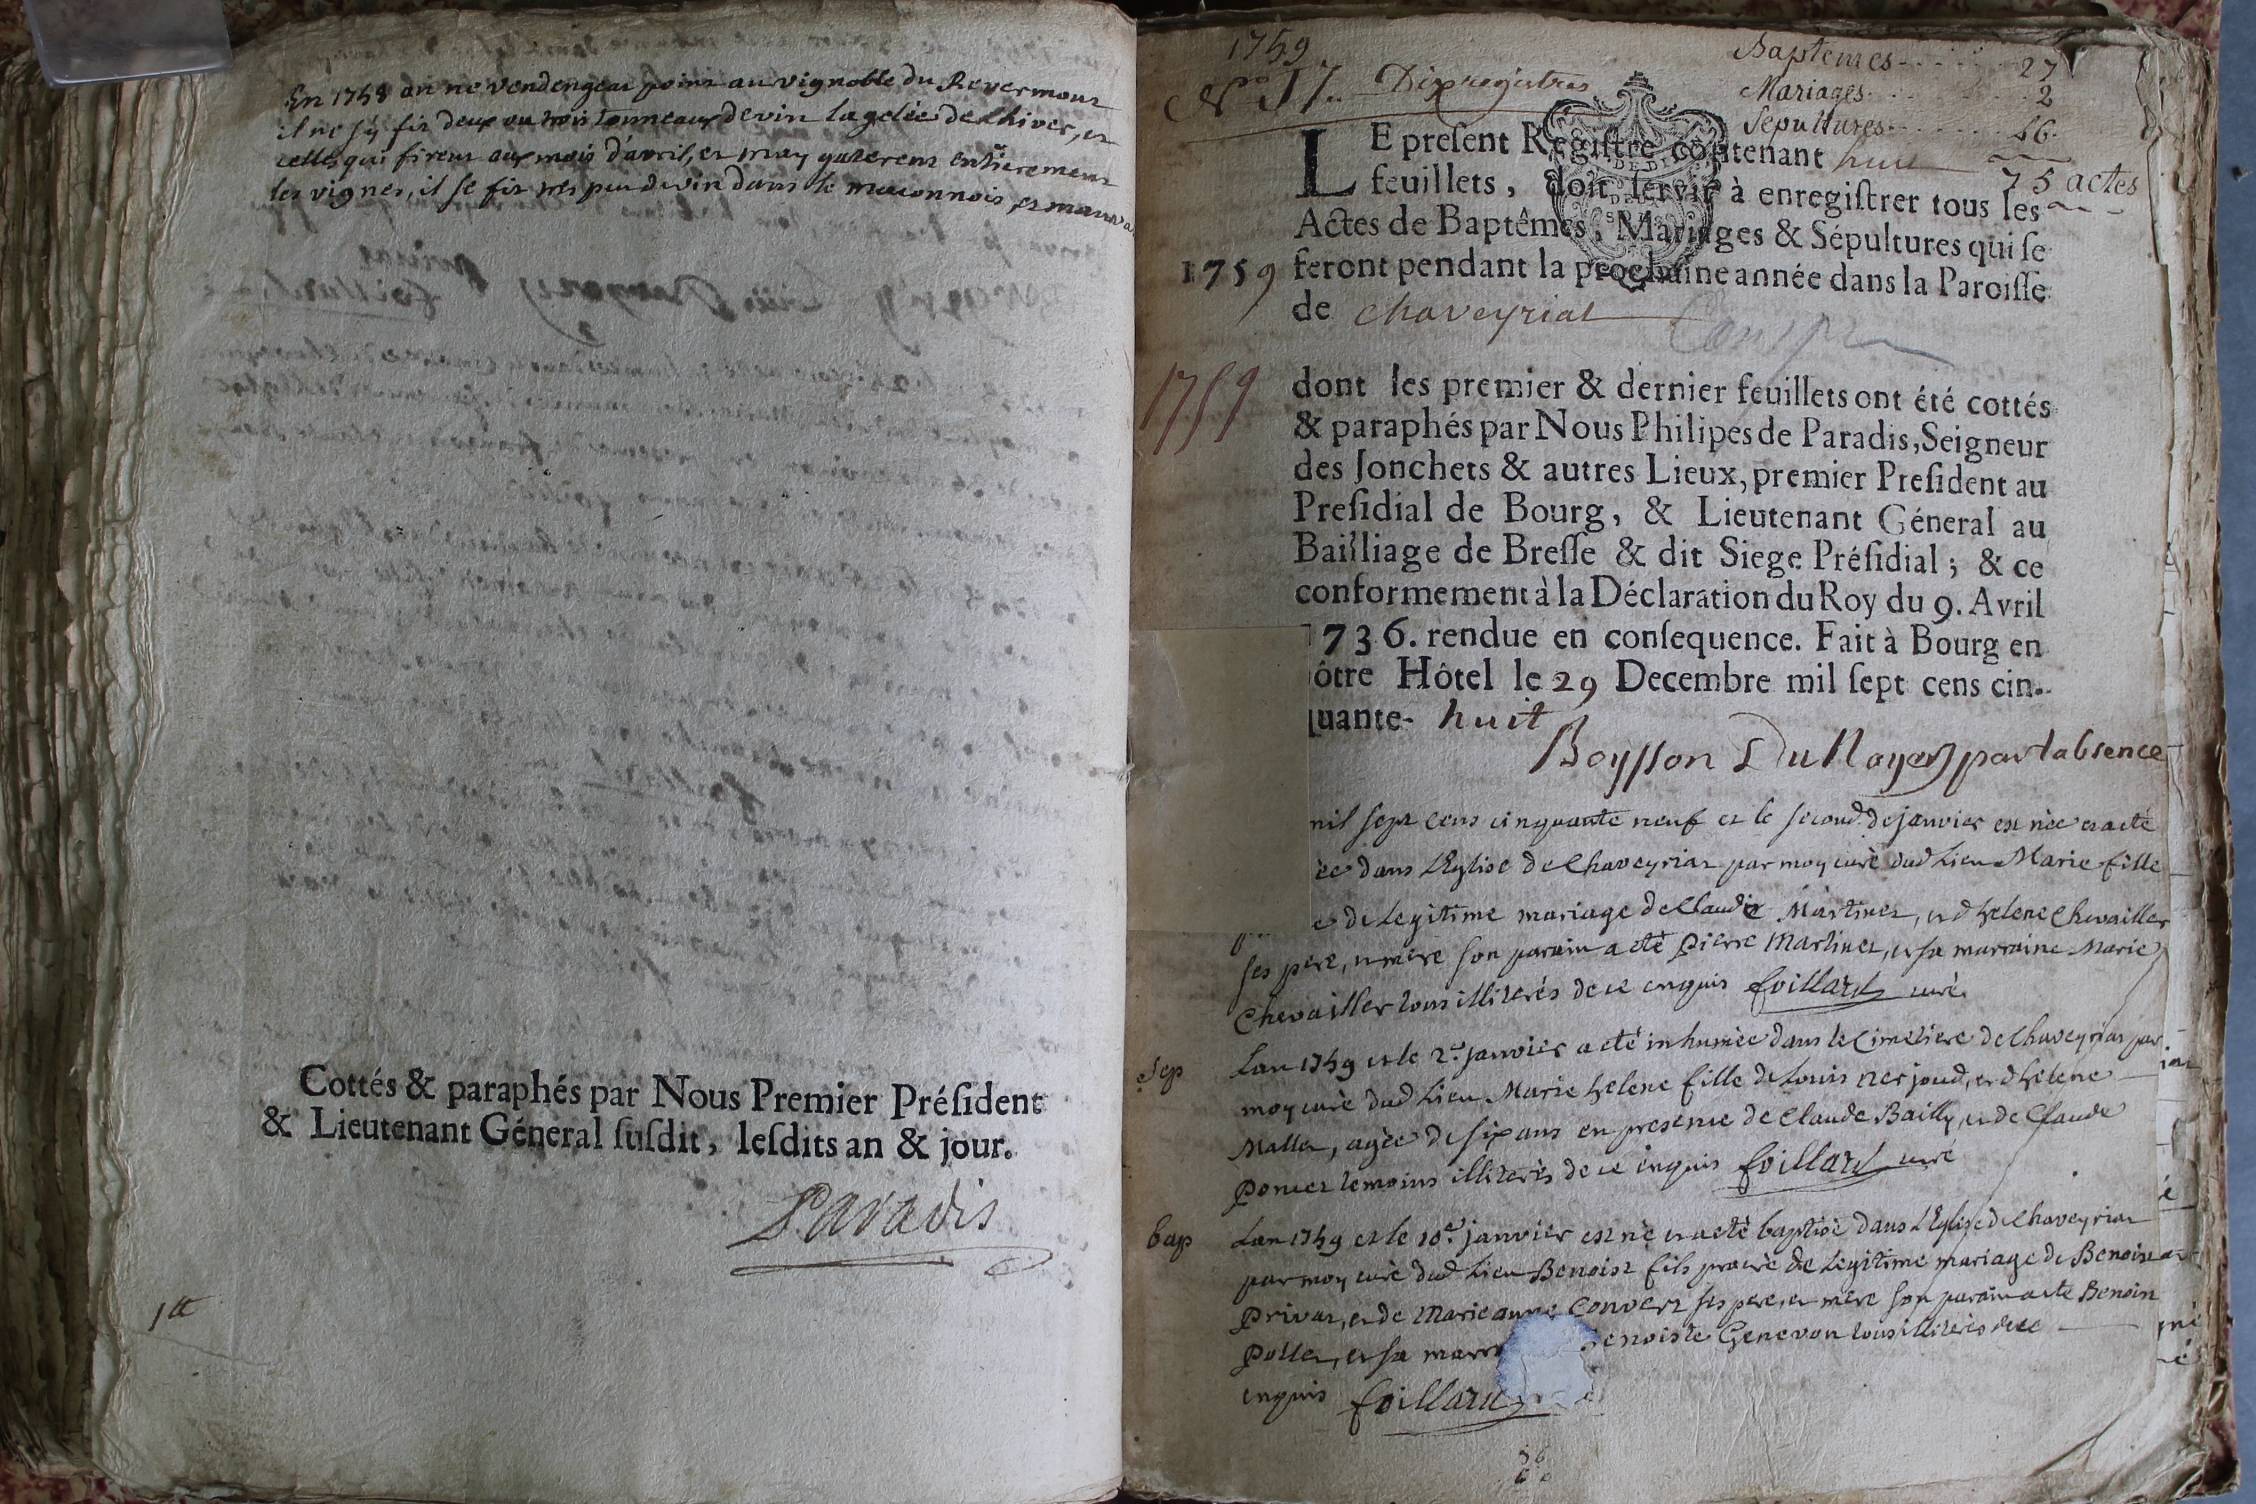 En 1758 on ne vendengea point au vignoble du Revermont
il ne s'y fit deux ou trois tonneaux de vin la gelée de l'hiver, et
celles qui firent aux mois d'avril, et may gaterent entierement
les vignes, il se fit tres peu de vin dans le maconnois, et mauvais
Cottés & paraphés par Nous Premier Préſident
& Lieutenant Géneral ſuſdit, leſdits an & jour.
Paradis
1759
N° 17. Dix registres
Baptemes 27
Mariages 2
Sepultures 46
75 actes
LE preſent Regiſtre contenant huit
feuillets, doit ſervir à enregiſtrer tous les
Actes de Baptêmes, Mariages & Sépultures qui ſe
1759 feront pendant la prochaine année dans la Paroiſſe
de Chaveyriat
1759
dont les premier & dernier feuillets ont été cottés
& paraphés par Nous Philipes de Paradis, Seigneur
des Jonchets & autres Lieux, premier Preſident au
Preſidial de Bourg, & Lieutenant Géneral au
Bailliage de Breſſe & dit Siege Préſidial ; & ce
conformement à la Déclaration du Roy du 9. Avril
1736. rendue en conſequence. Fait à Bourg en
ôtre Hôtel le 29 Decembre mil ſept cens cin-
quante- huit
Boysson Du Noyer par l'absence
mil sept cens cinquante neuf et le second de janvier est née et a eté
ée dans l'Eglise de Chaveyriat par moy curé dud Lieu Marie fille
e de Legitime mariage de Claude Martinet, et d'helene Chevailler
ses pere, et mere son parain a eté Pierre Martinet, et sa marraine Marie
Chevailler tous illiterés de ce enquis Foillard curé
Sep Lan 1759 et le 2.e janvier a eté inhumée dans le Cimetiere de Chaveyriat par
moy curé dud Lieu Marie helene fille de Louis Nerjoud, et d'helene
Mallet, agée de six ans en presence de Claude Bailly, et de Claude
Poncet temoins illiterés de ce enquis Foillard curé
bap Lan 1759 et le 10.e janvier est né et a eté baptisé dans l'Eglise de Chaveyriat
par moy curé dud Lieu Benoist fils procréé de Legitime mariage de Benoist
Privat, et de Marie anne Convert ses pere, et mere son parain a eté Benoist
Pollet, et sa marr enoiste Genevon tous illiterés de ce
enquis Foillard